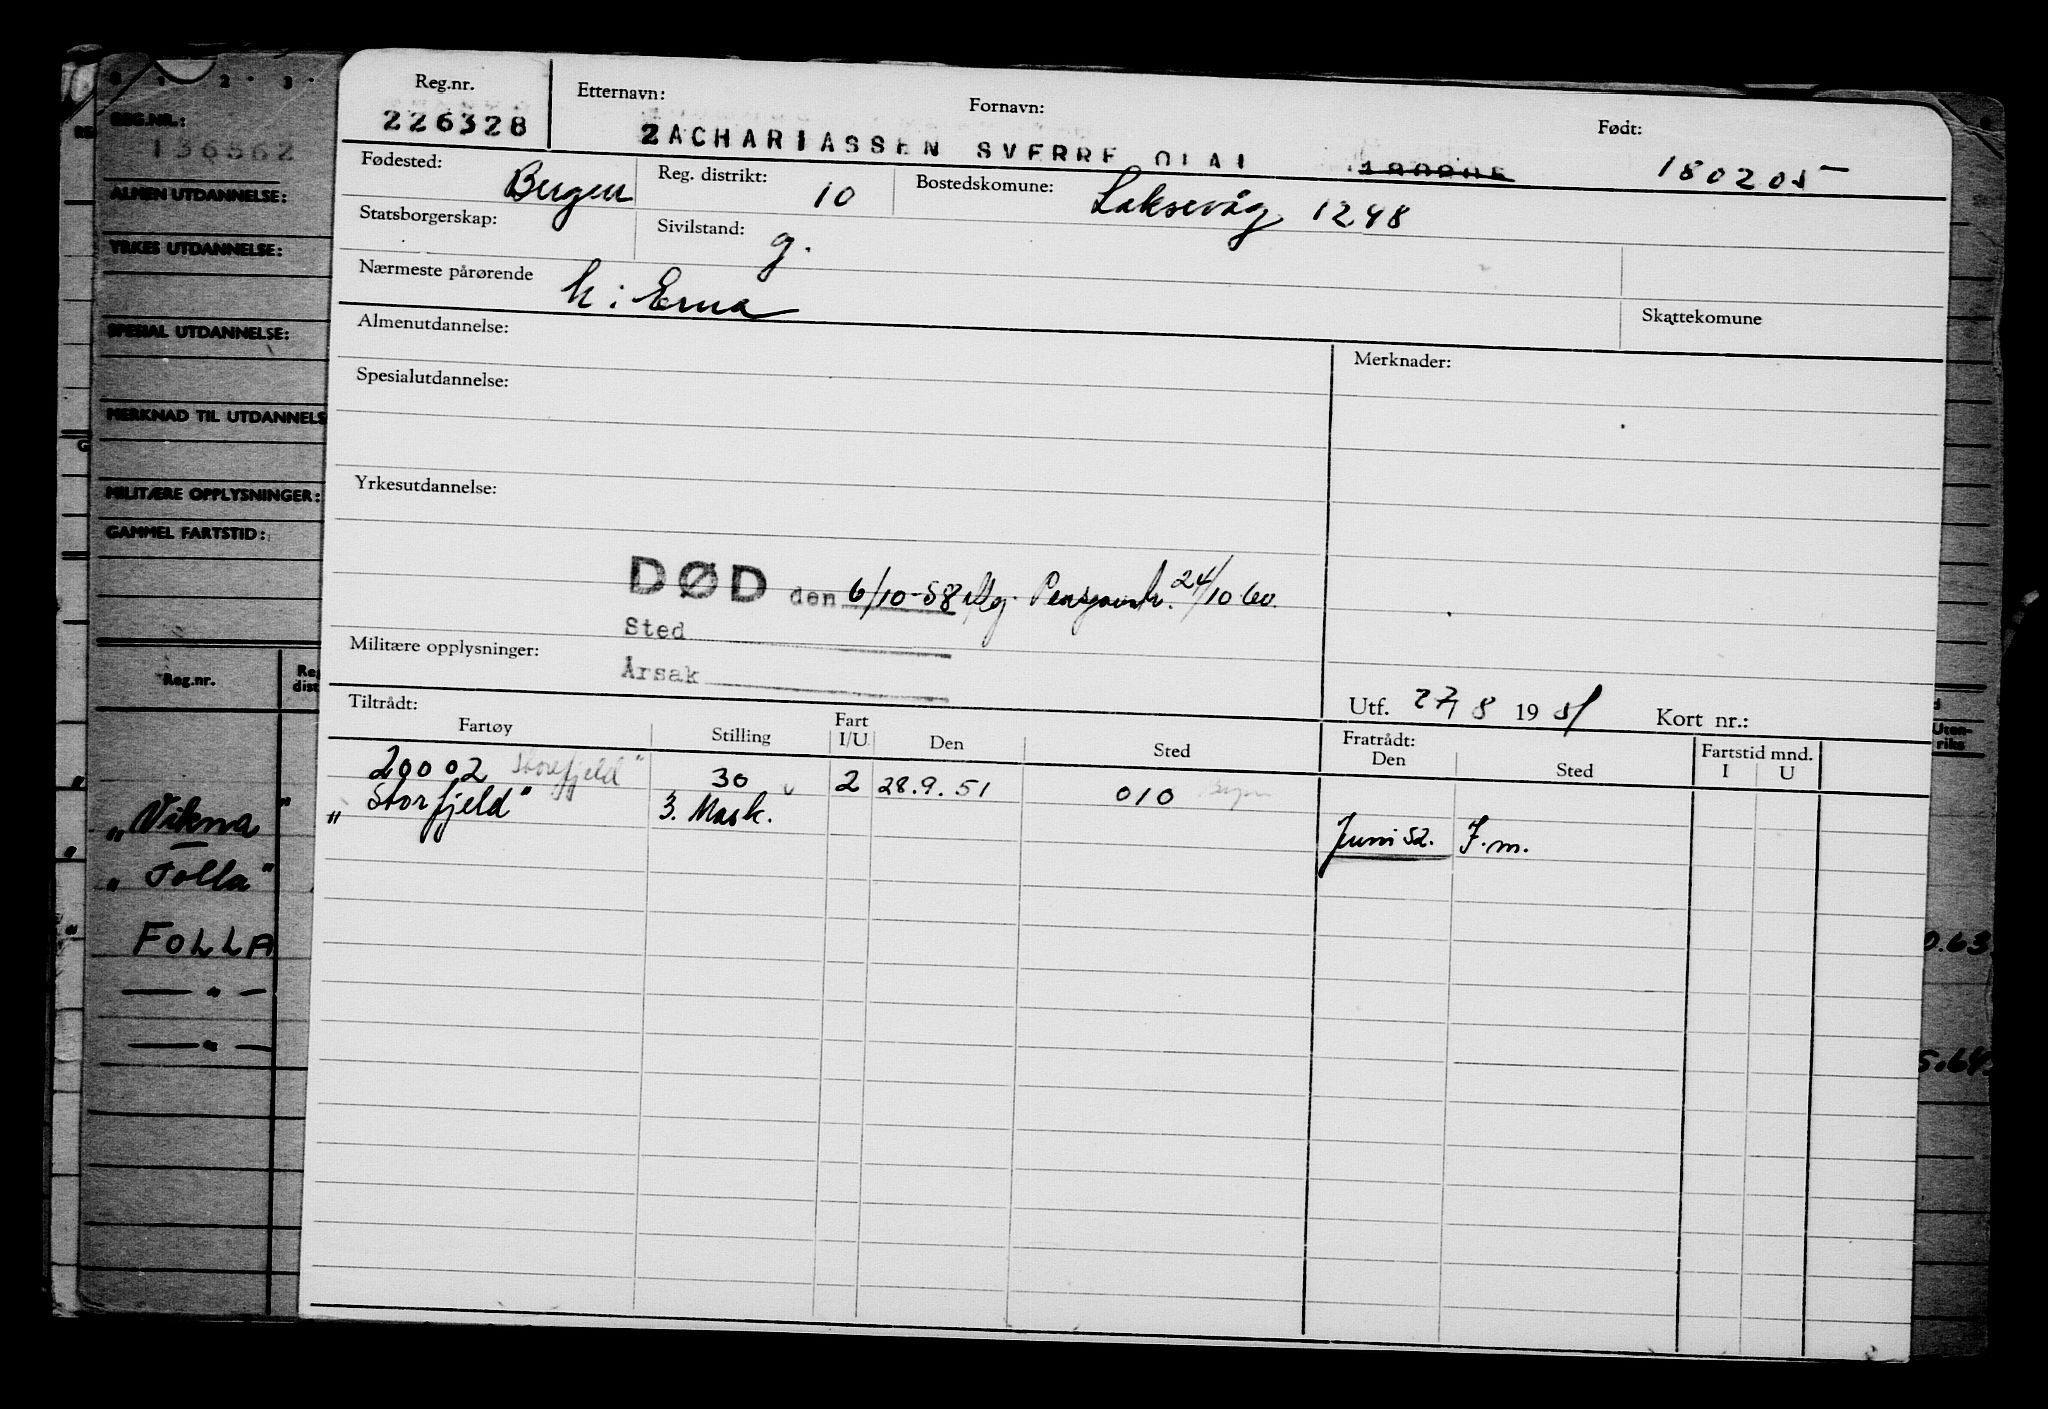 Reg.nr. Etternavn: Fornavn: Født:
226328 ZACHARIASSEN SVERRE OLAI 180205
Fødested: Bergen Reg. distrikt: 10 Bostedskomune: Laksevåg 1248
Statsborgerskap: Sivilstand: g.
Nærmeste pårørende h: Erna
Skattekomune
Almenutdannelse: Merknader:
Spesialutdannelse:
Yrkesutdannelse:
DØD den 6/10-58 24/10 60.
Sted
Militære opplysninger: Årsak
Utf. 27/8 1951 Kort nr.:
Tiltrådt: Fratrådt: Fartstid mnd.
Fartøy Stilling Fart I/U Den Sted Den Sted I U
20002 Storfjeld" 30 2 28.9.51 010 Bgn
"Storfjeld" 3. Mask. Juni 52. F.m.
0 1 2 3
REG.NR.:
136562
ALMEN UTDANNELSE:
YRKES UTDANNELSE:
SPESIAL UTDANNELSE:
MERKNAD TIL UTDANNELS
MILITÆRE OPPLYSNINGER:
GAMMEL FARTSTID:
Reg.nr. Reg dist
"Vikna"
"Folla"
FOLLA
— " —
— " —
Uten-
riks
0.63.
5.64.